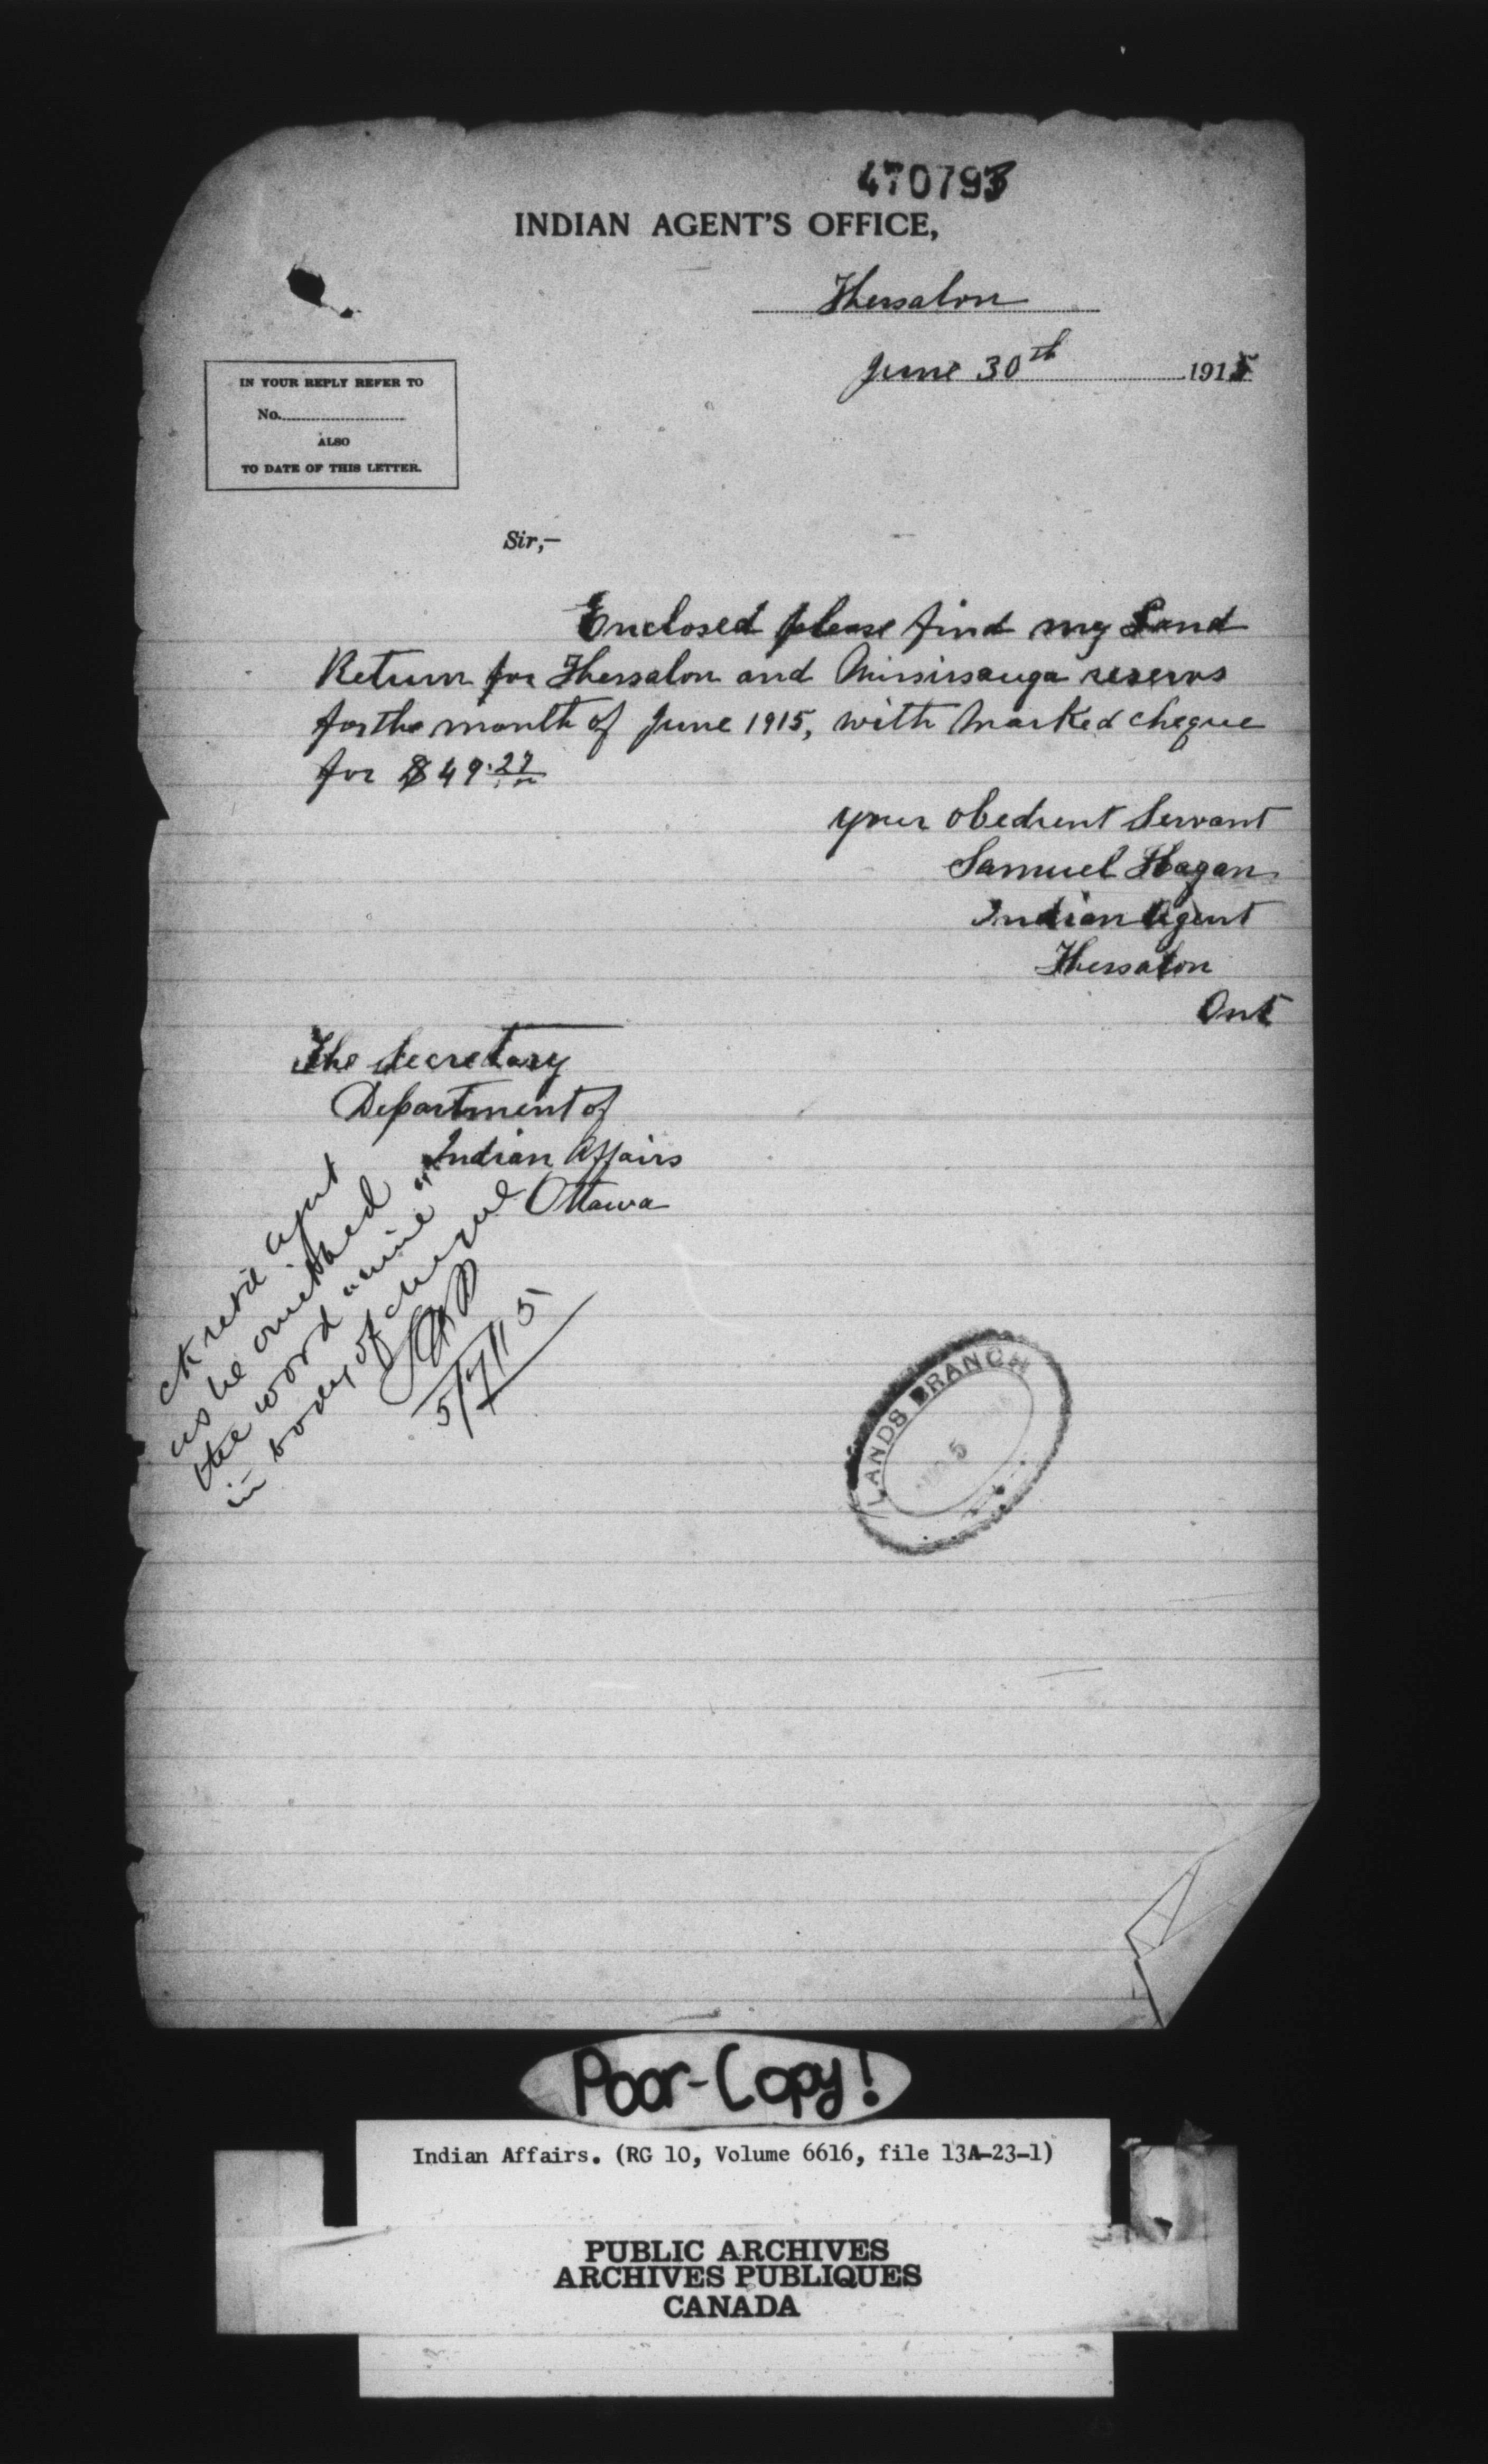 470793
INDIAN AGENT'S OFFICE,
Thessalon
June 30th 1915
IN YOUR REPLY REFER TO
No.
ALSO
TO DATE OF THIS LETTER.
Sir,—
Enclosed please find my Land
Return for Thessalon and Mississauga reservs
for the month of June 1915, with marked cheque
for $49.27
your obedient Servant
Samuel Hagan
Indian Agent
Thessalon
Ont
The Secretary
Department of
Indian Affairs
Ottawa
ck retd agent
as he omitted
the word "nine"
in body of cheque
5/7/15
LANDS BRANCH
5
Poor-Copy!
Indian Affairs. (RG 10, Volume 6616, file 13A-23-1)
PUBLIC ARCHIVES
ARCHIVES PUBLIQUES
CANADA